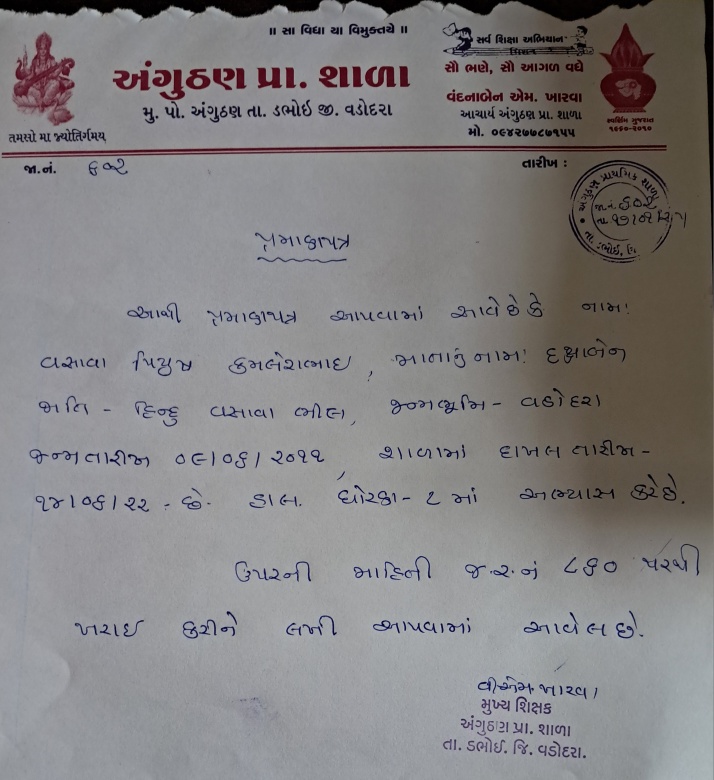 ॥ સા વિદ્યા યા વિમુક્તયે ॥
સર્વ શિક્ષા અભિયાન
સૌ ભણે, સૌ આગળ વધે
અંગુઠણ પ્રા. શાળા
મુ. પો. અંગુઠણ તા. ડભોઇ જી. વડોદરા
વંદનાબેન એમ. ખારવા
આચાર્ય અંગુઠણ પ્રા. શાળા
મો. ૦૯૪૨૭૭૮૭૧૫૫
તમસો મા જ્યોતિર્ગમય
૧૯૬૦-૨૦૧૦
જા.નં. ૬૦૨
તારીખ :
અંગુઠણ પ્રાથમિક શાળા
જા.નં. ૬૦૨
તા. ડભોઇ,
પ્રમાણપત્ર
આથી પ્રમાણપત્ર આપવામાં આવે છે કે નામ:
વસાવા પિયુષ કમલેશભાઇ, માતાનું નામ: દક્ષાબેન
જાતિ - હિન્દુ વસાવા ભીલ, જન્મભૂમિ - વડોદરા
જન્મતારીખ ૦૯/૦૬/૨૦૧૧, શાળામાં દાખલ તારીખ -
૧૪/૦૬/૨૨ - છે. હાલ. ધોરણ - ૮ માં અભ્યાસ કરે છે.
ઉપરની માહિતી જ.ર.નં ૮૬૦ પરથી
ખરાઇ કરીને લખી આપવામાં આવેલ છે.
વીએમ ખારવા
મુખ્ય શિક્ષક
અંગુઠણ પ્રા. શાળા
તા. ડભોઈ. જિ. વડોદરા.